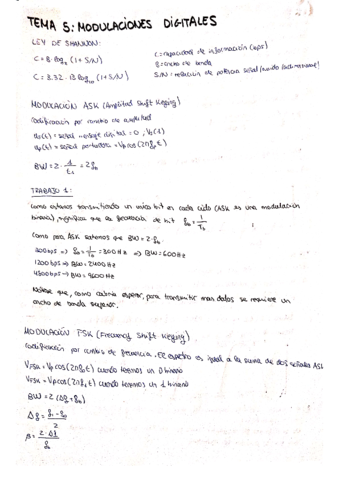 TEMA 5: MODULACIONES DIGITALES
LEY DE SHANNON:
C = B·log₂ (1 + S/N)
C = 3.32 · B log₁₀ (1 + S/N)
C = capacidad de información (bps)
B = ancho de banda
S/N = relación de potencia señal/ruido (adimensional)
MODULACIÓN ASK (Amplitud Shift Keying)
Codificación por cambio de amplitud
= señal mensaje digital = 0,
= señal portadora = Vp cos(2πf₀t)
BW = 2 ·
TRABAJO 1:
Como estamos transmitiendo un único bit en cada ciclo (ASK es una modulación
binaria), significa que la frecuencia de bit
Como para ASK sabemos que BW = 2·
300 bps => = 300 Hz => BW = 600 Hz
1200 bps => BW = 2400 Hz
4800 bps => BW = 9600 Hz
Nótese que, como cabría esperar, para transmitir más datos se requiere un
ancho de banda superior.
MODULACIÓN FSK (Frequency Shift Keying)
Codificación por cambio de frecuencia. El espectro es igual a la suma de dos señales ASK
V_FSK = Vp cos(2πf₀t) cuando tenemos un 0 binario
V_FSK = Vp cos(2πf₁t) cuando tenemos un 1 binario
BW = 2 (Δf + f_b)
Δf = (f₁ - f₀)/2
β = 2·Δf/f_b